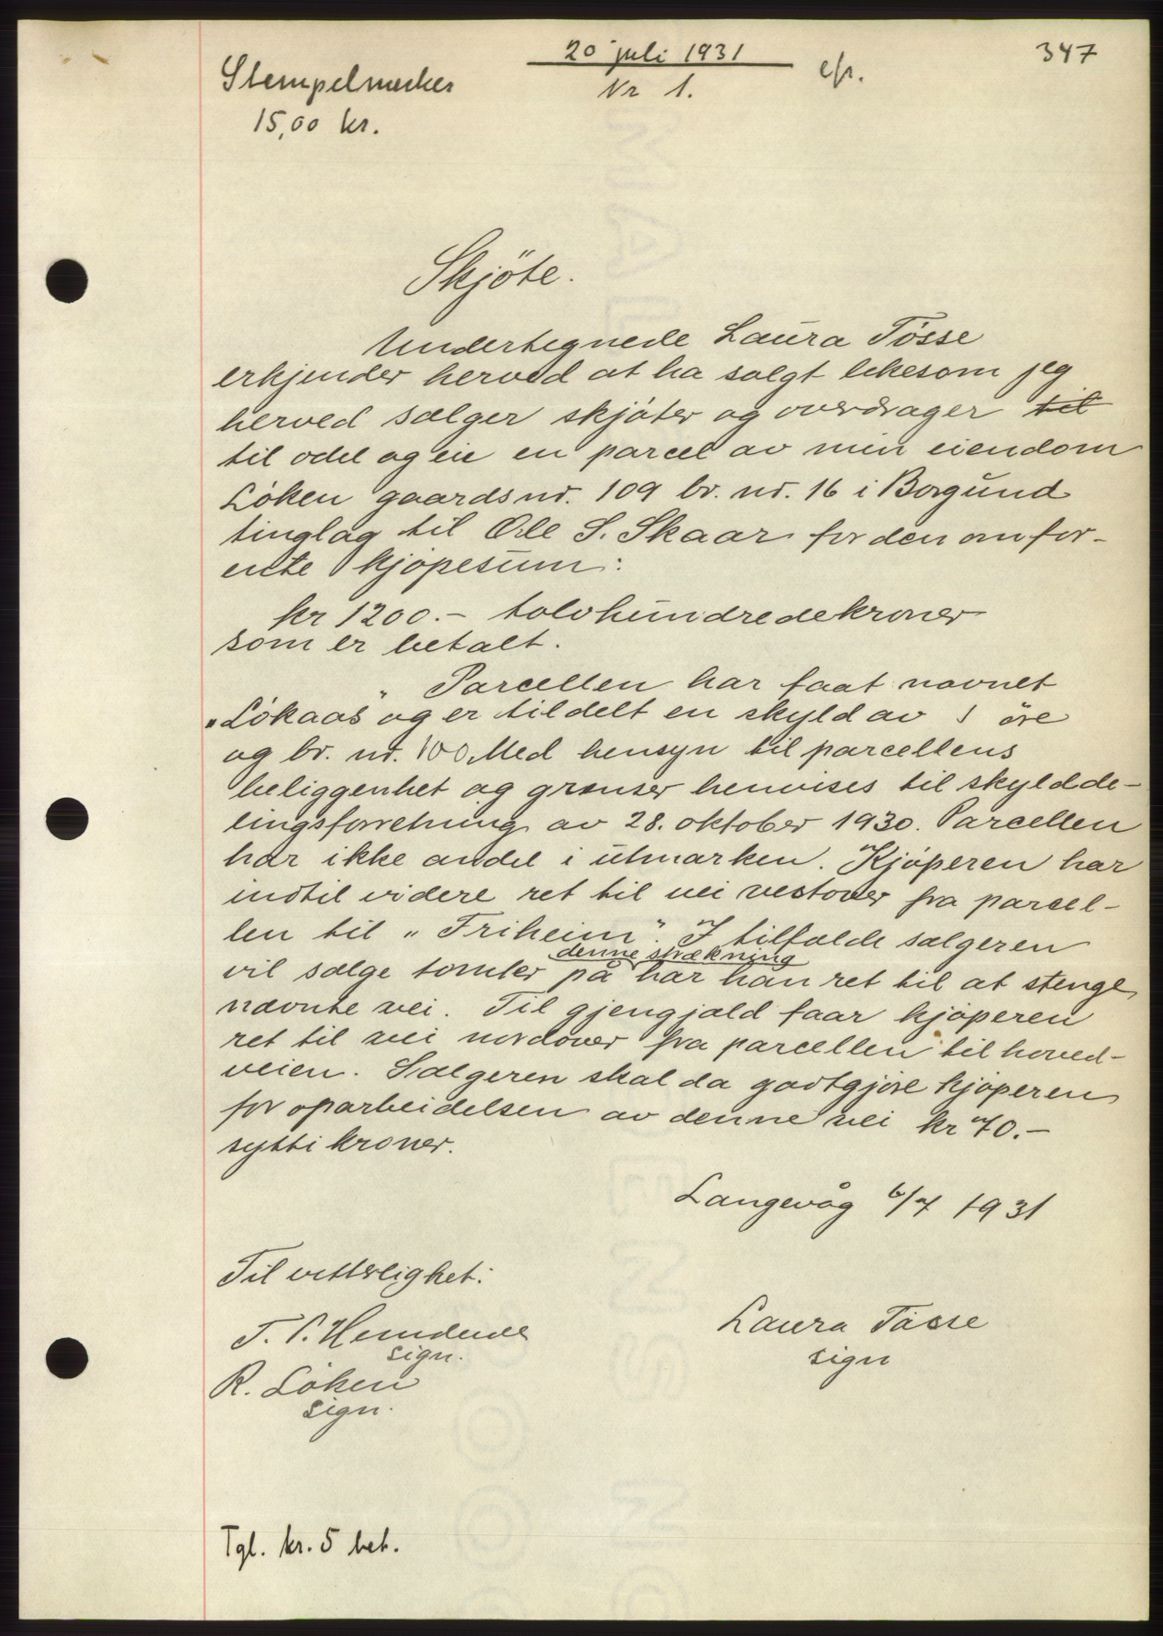 20 juli 1931
347
Stempelmerker
Nr 1.
15,00 kr.
Skjöte.
Undertegnede Laura Tösse
erkjender herved at ha solgt likesom jeg
herved sælger skjöter og overdrager til
til odel og eie en parcel av min eiendom
Löken gaardsnr. 109 br. nr. 16 i Borgund
tinglag til Ole S. Skaar for den omfor-
ente kjöpesum:
kr 1200.- tolvhundredekroner
som er betalt.
Parcellen har faat navnet
"Lökaas" og er tildelt en skyld av 1 öre
og br. nr. 100. Med hensyn til parcellens
beliggenhet og grænser henvises til skyldde-
lingsforretning av 28. oktober 1930. Parcellen
har ikke andel i utmarken. Kjöperen har
indtil videre ret til vei vestover fra parcel-
len til "Friheim". I tilfælde sælgeren
denne strækning
vil sælge tomter på har han ret til at stenge
nævnte vei. Til gjengjæld faar kjöperen
ret til vei nordover fra parcellen til hoved-
veien. Sælgeren skal da godtgjöre kjöperen
for oparbeidelsen av denne vei kr 70.-
sytti kroner.
Langevåg 6/7 1931
Til vitterlighet:
Laura Tösse
sign
sign.
R. Löken
sign.
Tgl. kr. 5 bet.